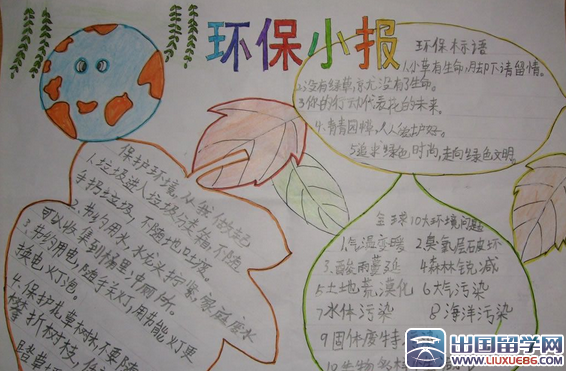 环保小报
环保标语
1.小草有生命,足下请留情。
2.没有绿草,就没有了生命。
3.你的行动代表花的未来。
4.青青园情,人人爱护好。
5.追求绿色时尚,走向绿色文明。
保护环境,从我做起
1.垃圾进入垃圾箱,不随
手扔垃圾,不随地吐痰。
2.节约用水,水龙头拧紧,家庭废水
可以收集到桶里,冲厕所。
3.节约用电,随手关灯,用节能灯
换电灯泡。
4.保护花草树木,不要随
折树枝,
踏草
全球10大环境问题
1气温变暖 2臭氧层破坏
3酸雨蔓延 4森林锐减
5土地荒漠化 6大气污染
7水体污染 8海洋污染
9固体废
10生物
出国留学网
WWW.LIUXUE86.COM